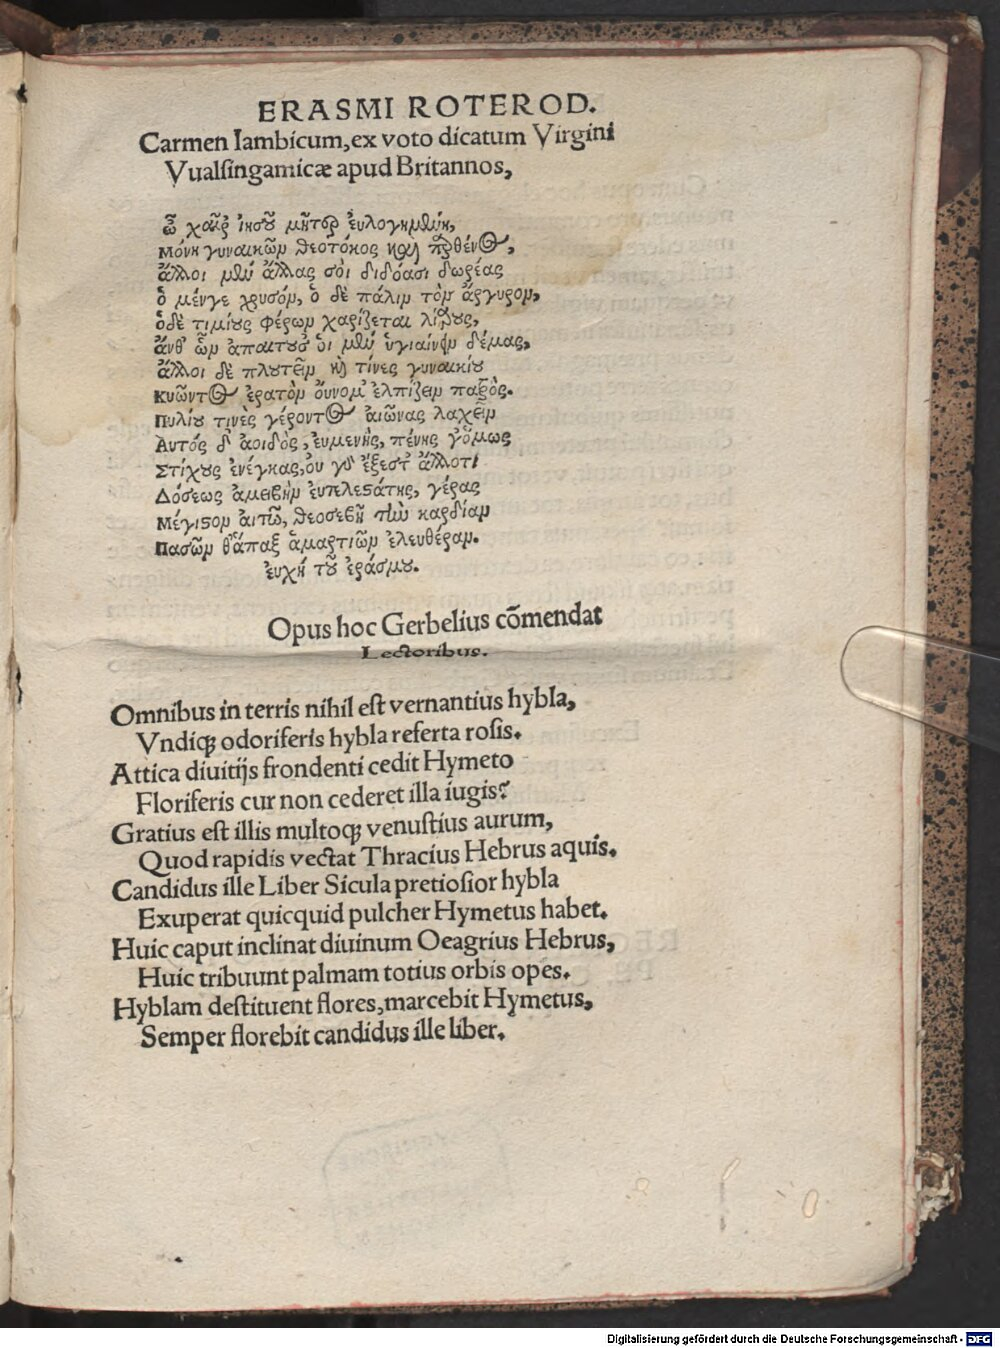 ERASMI ROTEROD.
Carmen Iambicum, ex voto dicatum Virgini
Vualsingamicæ apud Britannos,
ὦ χαῖρ' ἰησοῦ μῆτερ εὐλογημένη,
μόνη γυναικῶν θεοτόκος καὶ παρθένος,
ἄλλοι μὲν ἄλλας σοὶ διδόασι δωρέας
ὁ μένγε χρυσόν, ὁ δὲ πάλιν τὸν ἄργυρον,
ὁδὲ τιμίους φέρων χαρίζεται λίθους,
ἀνθ' ὧν ἀπαιτοῦσ' οἱ μὲν ὑγιαίνειν δέμας,
ἄλλοι δὲ πλουτεῖν καὶ τίνες γυναικίου
κυῶντος ἐρατὸν οὔνομ' ἐλπίζειν παρὸς.
Πυλίου τινὲς γέροντος αἰῶνας λαχεῖν
Αυτός δ' ἀοιδὸς, εὐμενὴς, πένης γ' ὅμως
Στίχους ἐνέγκας, οὐ γὰρ ἔξεστ' ἄλλοτι
Δόσεως ἀμειβὴν εὐτελεστάτης, γέρας
Μέγιστον αἰτῶ, θεοσεβῆ τὴν καρδίαν
Πασῶν θ' ἅπαξ ἁμαρτιῶν ἐλευθέραν.
εὐχή τοῦ ἐράσμου.
Opus hoc Gerbelius cōmendat
Lectoribus.
Omnibus in terris nihil est vernantius hybla,
Vndiqꝫ odoriferis hybla referta rosis.
Attica diuitijs frondenti cedit Hymeto
Floriferis cur non cederet illa iugis?
Gratius est illis multoqꝫ venustius aurum,
Quod rapidis vectat Thracius Hebrus aquis.
Candidus ille Liber Sicula pretiosior hybla
Exuperat quicquid pulcher Hymetus habet.
Huic caput inclinat diuinum Oeagrius Hebrus,
Huic tribuunt palmam totius orbis opes.
Hyblam destituent flores, marcebit Hymetus,
Semper florebit candidus ille liber.
Digitalisierung gefördert durch die Deutsche Forschungsgemeinschaft - DFG